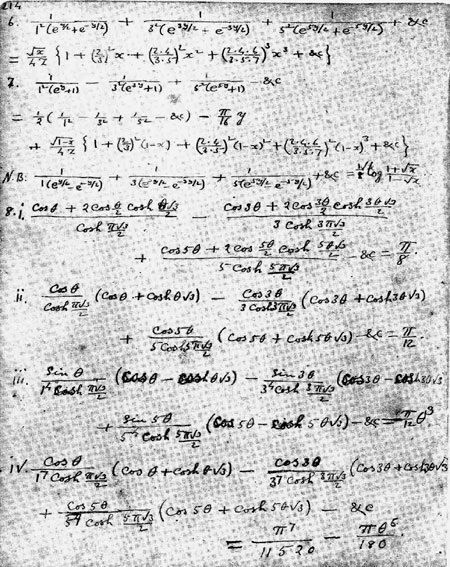 214
6. 1/(1²(e^{y/2}+e^{-y/2})) + 1/(3²(e^{3y/2}+e^{-3y/2})) + 1/(5²(e^{5y/2}+e^{-5y/2})) + &c
= √x/(4z) {1 + (2/3)²x + (2·4/3·5)²x² + (2·4·6/3·5·7)²x³ + &c}
7. 1/(1²(e^y+1)) - 1/(3²(e^{3y}+1)) + 1/(5²(e^{5y}+1)) - &c
= ½(1/1² - 1/3² + 1/5² - &c) - π/16 y
+ √(1-x)/(4z) {1 + (2/3)²(1-x) + (2·4/3·5)²(1-x)² + (2·4·6/3·5·7)²(1-x)³ + &c}
N.B. 1/(1(e^{y/2}-e^{-y/2})) + 1/(3(e^{3y/2}-e^{-3y/2})) + 1/(5(e^{5y/2}-e^{-5y/2})) + &c = 1/8 log (1+√x)/(1-√x)
8. i. (cosθ + 2cos θ/2 cosh θ√3/2)/(cosh π√3/2) - (cos3θ + 2cos 3θ/2 cosh 3θ√3/2)/(3 cosh 3π√3/2)
+ (cos5θ + 2cos 5θ/2 cosh 5θ√3/2)/(5 cosh 5π√3/2) - &c = π/8
ii. cosθ/(cosh π√3/2) (cosθ + coshθ√3) - cos3θ/(3cosh 3π√3/2) (cos3θ + cosh3θ√3)
+ cos5θ/(5cosh 5π√3/2) (cos5θ + cosh5θ√3) - &c = π/12
iii. sinθ/(1⁴ cosh π√3/2) (cosθ - coshθ√3) - sin3θ/(3⁴cosh 3π√3/2) (cos3θ - cosh3θ√3)
+ sin5θ/(5⁴ cosh 5π√3/2) (cos5θ - cosh5θ√3) - &c = π/12 θ³
iv. cosθ/(1⁷ cosh π√3/2) (cosθ + coshθ√3) - cos3θ/(3⁷ cosh 3π√3/2) (cos3θ + cosh3θ√3)
+ cos5θ/(5⁷ cosh 5π√3/2) (cos5θ + cosh5θ√3) - &c
= π⁷/11520 - πθ⁶/180